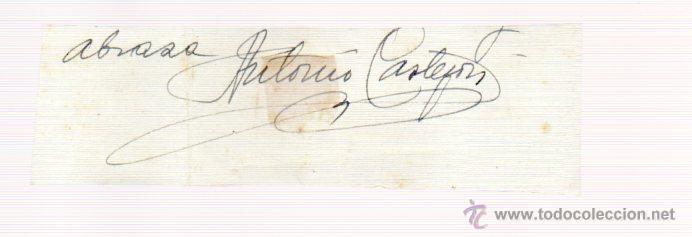 abraza Antonio Castejón
www.todocoleccion.net